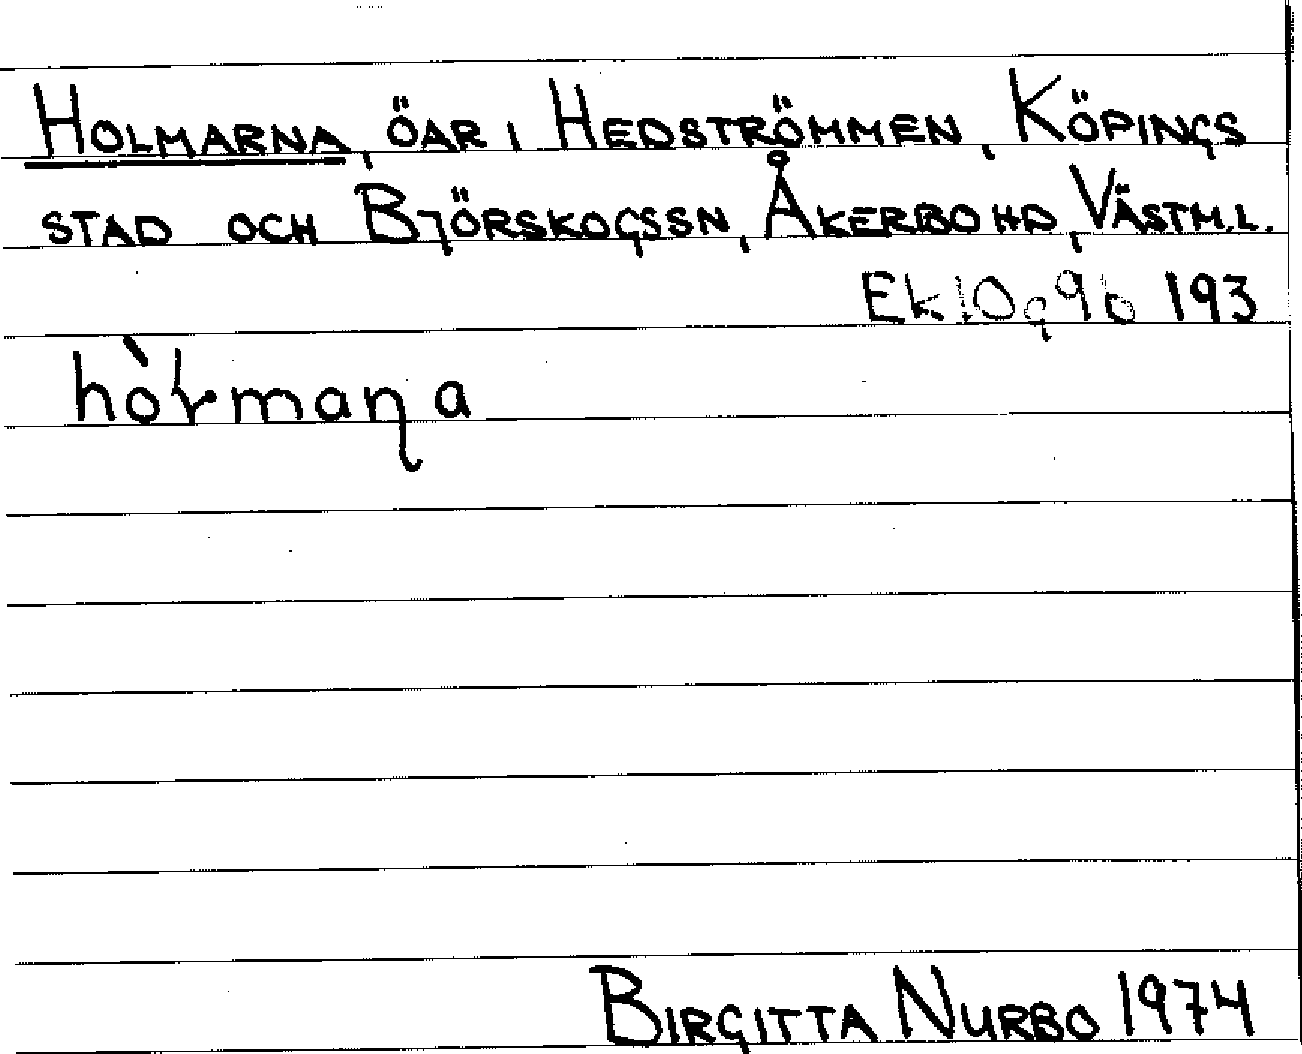 HOLMARNA, ÖAR I HEDSTRÖMMEN, KÖPINGS
STAD OCH BJÖRSKOGSSN, ÅKERBO HD, VÄSTM.L.
Ek 10g 9b 193
hòɫmaɳa
BIRGITTA NURBO 1974